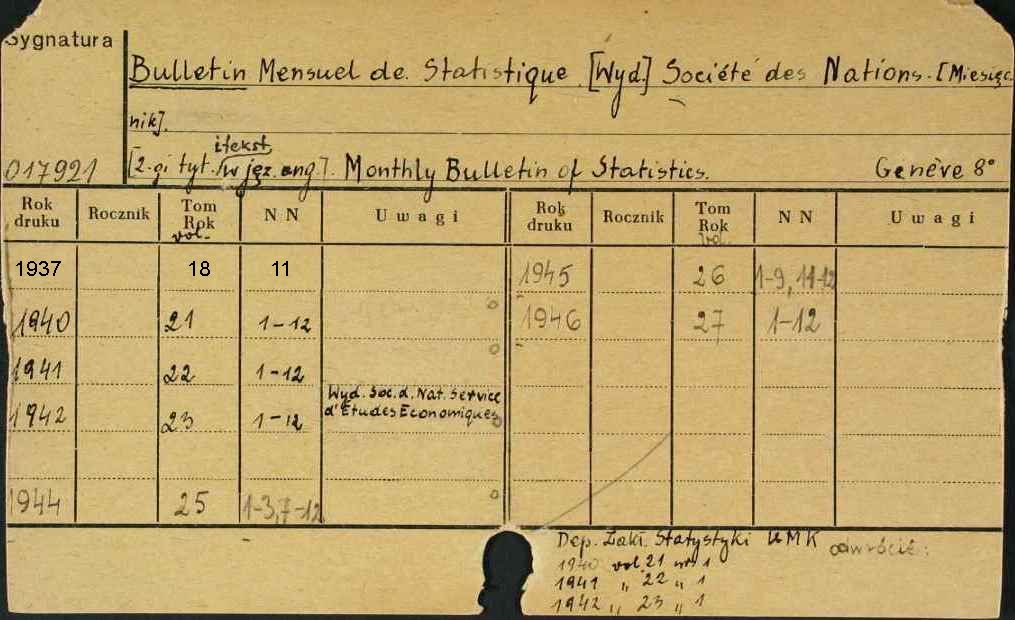 Sygnatura
Bulletin Mensuel de Statistique [Wyd.] Société des Nations. [Miesięcz
nik].
i tekst
017921 [2-gi tyt. w jęz. ang.]. Monthly Bulletin of Statistics. Genève 8°
Rok druku Rocznik Tom Rok vol. NN Uwagi Rok druku Rocznik Tom Rok vol. NN Uwagi
1937 18 11 1945 26 1-9, 11-12
1940 21 1-12 1946 27 1-12
1941 22 1-12
Wyd. Soc. d. Nat. Service
1942 23 1-12 d'Etudes Economiques
1944 25 1-3, 7-12
Dep. Zakł. Statystyki UMK odwrócić:
1940 vol. 21 nr 1
1941 „ 22 „ 1
1942 „ 23 „ 1